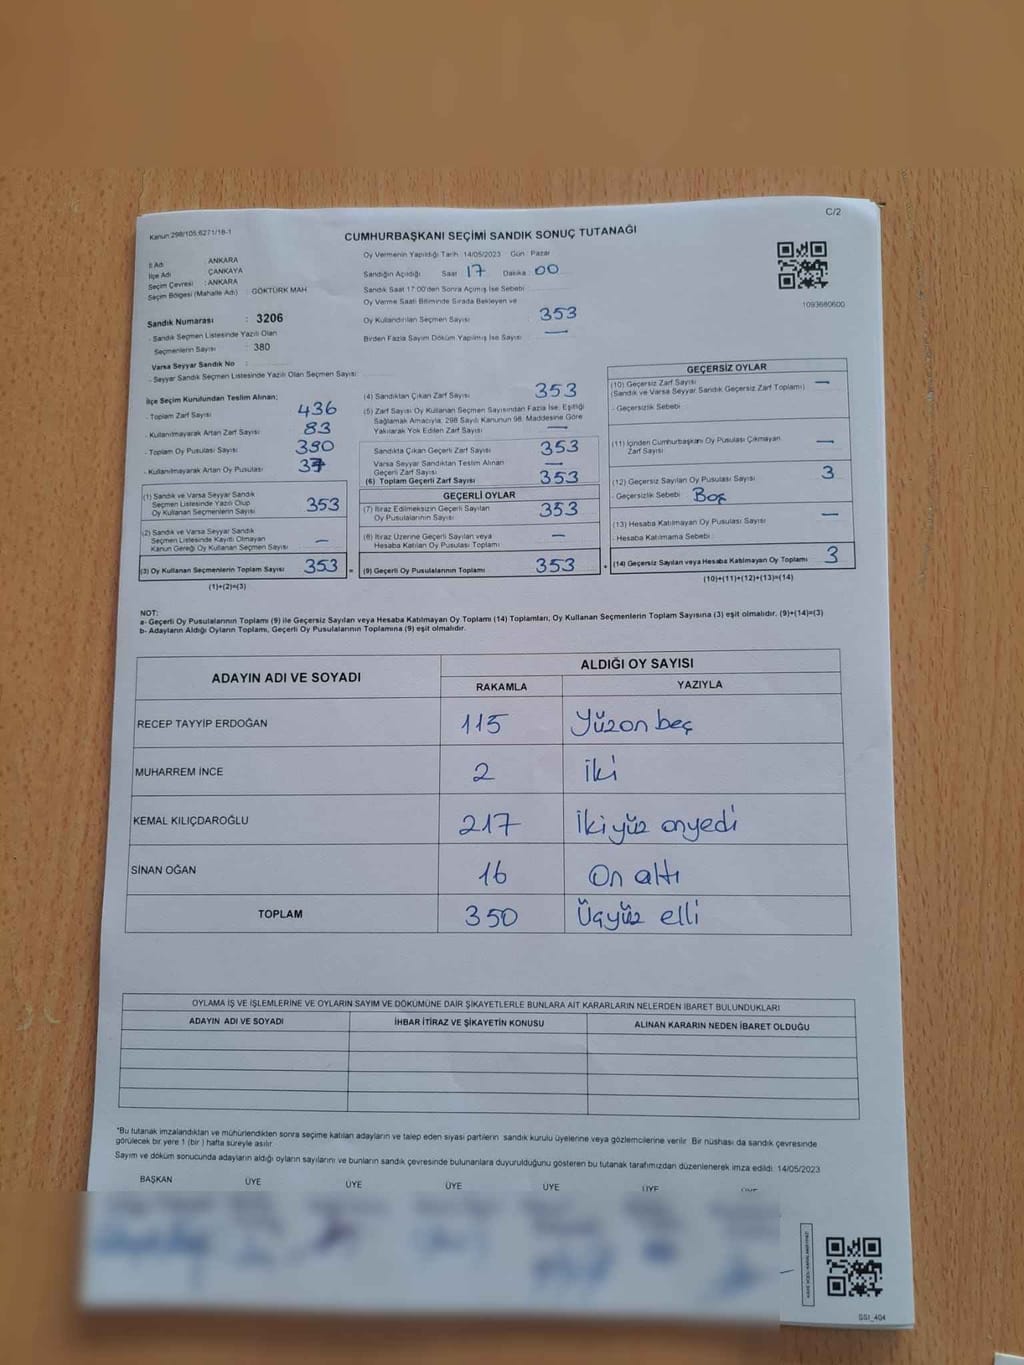 C/2
Kanun:298/105;6271/18-1
CUMHURBAŞKANI SEÇİMİ SANDIK SONUÇ TUTANAĞI
İl Adı : ANKARA
İlçe Adı : ÇANKAYA
Seçim Çevresi : ANKARA
Seçim Bölgesi (Mahalle Adı) : GÖKTÜRK MAH
Sandık Numarası : 3206
- Sandık Seçmen Listesinde Yazılı Olan
Seçmenlerin Sayısı : 380
Varsa Seyyar Sandık No :
- Seyyar Sandık Seçmen Listesinde Yazılı Olan Seçmen Sayısı:
Oy Vermenin Yapıldığı Tarih: 14/05/2023 Gün : Pazar
Sandığın Açıldığı Saat : 17 Dakika : 00
Sandık Saat 17:00'den Sonra Açılmış İse Sebebi :
Oy Verme Saati Bitiminde Sırada Bekleyen ve
Oy Kullandırılan Seçmen Sayısı : 353
Birden Fazla Sayım Döküm Yapılmış İse Sayısı : —
1093680600
İlçe Seçim Kurulundan Teslim Alınan;
- Toplam Zarf Sayısı : 436
- Kullanılmayarak Artan Zarf Sayısı : 83
- Toplam Oy Pusulası Sayısı : 390
- Kullanılmayarak Artan Oy Pusulası : 37
(1) Sandık ve Varsa Seyyar Sandık
Seçmen Listesinde Yazılı Olup
Oy Kullanan Seçmenlerin Sayısı 353
(2) Sandık ve Varsa Seyyar Sandık
Seçmen Listesinde Kayıtlı Olmayan
Kanun Gereği Oy Kullanan Seçmen Sayısı —
(3) Oy Kullanan Seçmenlerin Toplam Sayısı 353 =
(1)+(2)=(3)
(4) Sandıktan Çıkan Zarf Sayısı 353
(5) Zarf Sayısı Oy Kullanan Seçmen Sayısından Fazla İse, Eşitliği
Sağlamak Amacıyla; 298 Sayılı Kanunun 98. Maddesine Göre
Yakılarak Yok Edilen Zarf Sayısı —
Sandıkta Çıkan Geçerli Zarf Sayısı 353
Varsa Seyyar Sandıktan Teslim Alınan
Geçerli Zarf Sayısı —
(6) Toplam Geçerli Zarf Sayısı 353
GEÇERLİ OYLAR
(7) İtiraz Edilmeksizin Geçerli Sayılan
Oy Pusulalarının Sayısı 353
(8) İtiraz Üzerine Geçerli Sayılan veya
Hesaba Katılan Oy Pusulası Toplamı —
(9) Geçerli Oy Pusulalarının Toplamı 353 +
GEÇERSİZ OYLAR
(10) Geçersiz Zarf Sayısı
(Sandık ve Varsa Seyyar Sandık Geçersiz Zarf Toplamı) —
- Geçersizlik Sebebi :
(11) İçinden Cumhurbaşkanı Oy Pusulası Çıkmayan
Zarf Sayısı —
(12) Geçersiz Sayılan Oy Pusulası Sayısı 3
- Geçersizlik Sebebi : Boş
(13) Hesaba Katılmayan Oy Pusulası Sayısı —
- Hesaba Katılmama Sebebi :
(14) Geçersiz Sayılan veya Hesaba Katılmayan Oy Toplamı 3
(10)+(11)+(12)+(13)=(14)
NOT:
a- Geçerli Oy Pusulalarının Toplamı (9) ile Geçersiz Sayılan veya Hesaba Katılmayan Oy Toplamı (14) Toplamları, Oy Kullanan Seçmenlerin Toplam Sayısına (3) eşit olmalıdır. (9)+(14)=(3)
b- Adayların Aldığı Oyların Toplamı, Geçerli Oy Pusulalarının Toplamına (9) eşit olmalıdır.
ADAYIN ADI VE SOYADI ALDIĞI OY SAYISI
RAKAMLA YAZIYLA
RECEP TAYYİP ERDOĞAN 115 Yüzon beş
MUHARREM İNCE 2 İki
KEMAL KILIÇDAROĞLU 217 İkiyüz onyedi
SİNAN OĞAN 16 On altı
TOPLAM 350 Üçyüz elli
OYLAMA İŞ VE İŞLEMLERİNE VE OYLARIN SAYIM VE DÖKÜMÜNE DAİR ŞİKAYETLERLE BUNLARA AİT KARARLARIN NELERDEN İBARET BULUNDUKLARI
ADAYIN ADI VE SOYADI İHBAR İTİRAZ VE ŞİKAYETİN KONUSU ALINAN KARARIN NEDEN İBARET OLDUĞU
*Bu tutanak imzalandıktan ve mühürlendikten sonra seçime katılan adayların ve talep eden siyasi partilerin sandık kurulu üyelerine veya gözlemcilerine verilir. Bir nüshası da sandık çevresinde
görülecek bir yere 1 (bir ) hafta süreyle asılır.
Sayım ve döküm sonucunda adayların aldığı oyların sayılarını ve bunların sandık çevresinde bulunanlara duyurulduğunu gösteren bu tutanak tarafımızdan düzenlenerek imza edildi. 14/05/2023
BAŞKAN ÜYE ÜYE ÜYE ÜYE ÜYE ÜYE
SSI_404